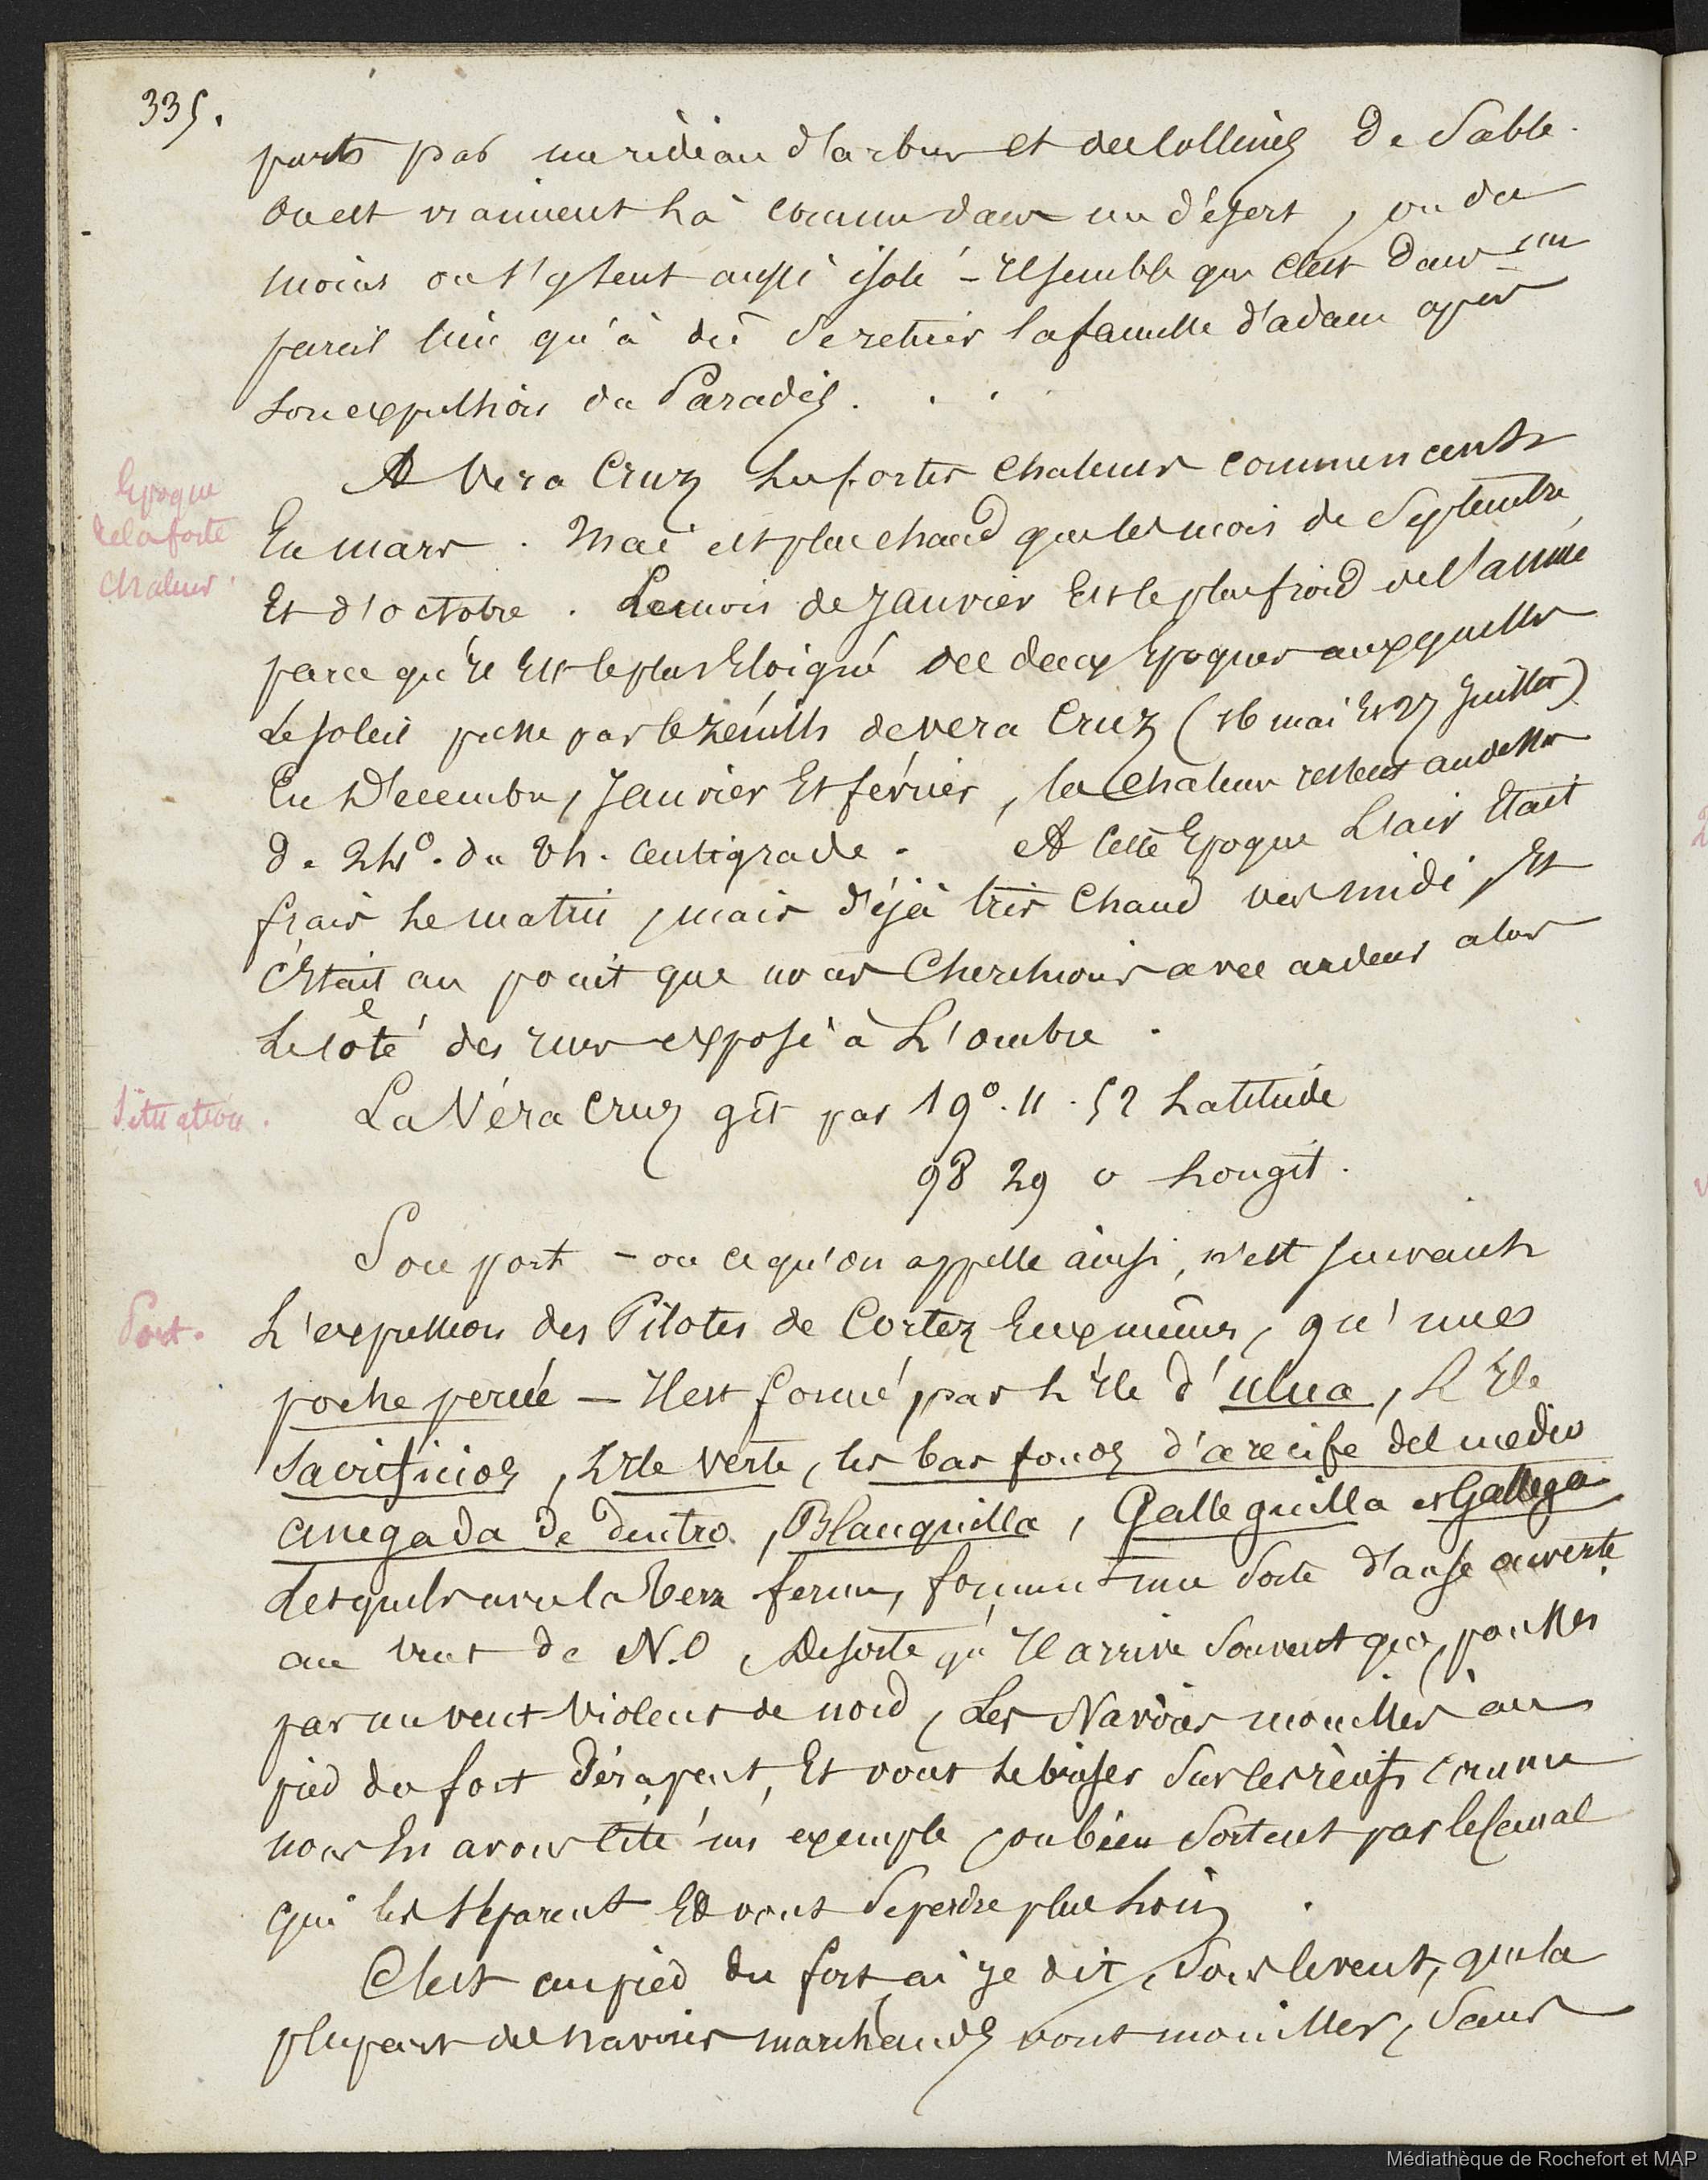 335.
parts par un rideau d'arbres et des collines de Sable.
On est vraiment là comme dans un désert, ou du
moins on s'y sent aussi isolé - Il semble que c'est dans un
pareil lieu qu'à dû se retirer la famille d'adam après
son expulsion du Paradis. . . .
A Vera Cruz les fortes chaleurs commencent
Epoque
de la forte
chaleur.
En mars. Mai est plus chaud que les mois de Septembre
Et d'octobre. Le mois de Janvier Est le plus froid de l'année
parce qu'il Est le plus Eloigné des deux Epoques auxquelles
Le soleil passe par le zénith de vera Cruz (16 mai Et 27 Juillet)
En Décembre, Janvier Et février, la chaleur restent au dessus
de 24°. du th. Centigrade. A cette Epoque L'air Etait
frais le matin, mais déjà très chaud vers midi, Et
c'Etait au point que nous cherchions avec ardeur alors
Le côté des rues exposé à L'ombre.
Situation.
La Véra Cruz gît par 19°. 11. 52 Latitude
98 29 0 Longit.
Son port - ou ce qu'on appelle ainsi, n'est suivant
Port.
L'expression des Pilotes de Cortez Eux mêmes, qu'une
poche percée — Il est formé par L'Ile d'ulua, L'Ile
Sacrificios, L'Ile verte, les bas fonds d'arecife del medio
anegada de dentro, Blanquilla, Galleguilla et Gallega
Lesquels avec la terre ferme, forment une Sorte d'anse ouverte
au vent de N.O, De sorte qu'Il arrive Souvent que, poussés
par un vent violent de nord, Les Navires mouillés au
pied du fort dérapent, Et vont se briser Sur les récifs comme
nous En avons cité un exemple, ou bien Sortent par le Canal
qui les séparent Et vont Se perdre plus Loin.
C'est au pied du fort ai Je dit, Sous le vent, que la
plupart des navires marchands vont mouiller, Sans
Médiathèque de Rochefort et MAP